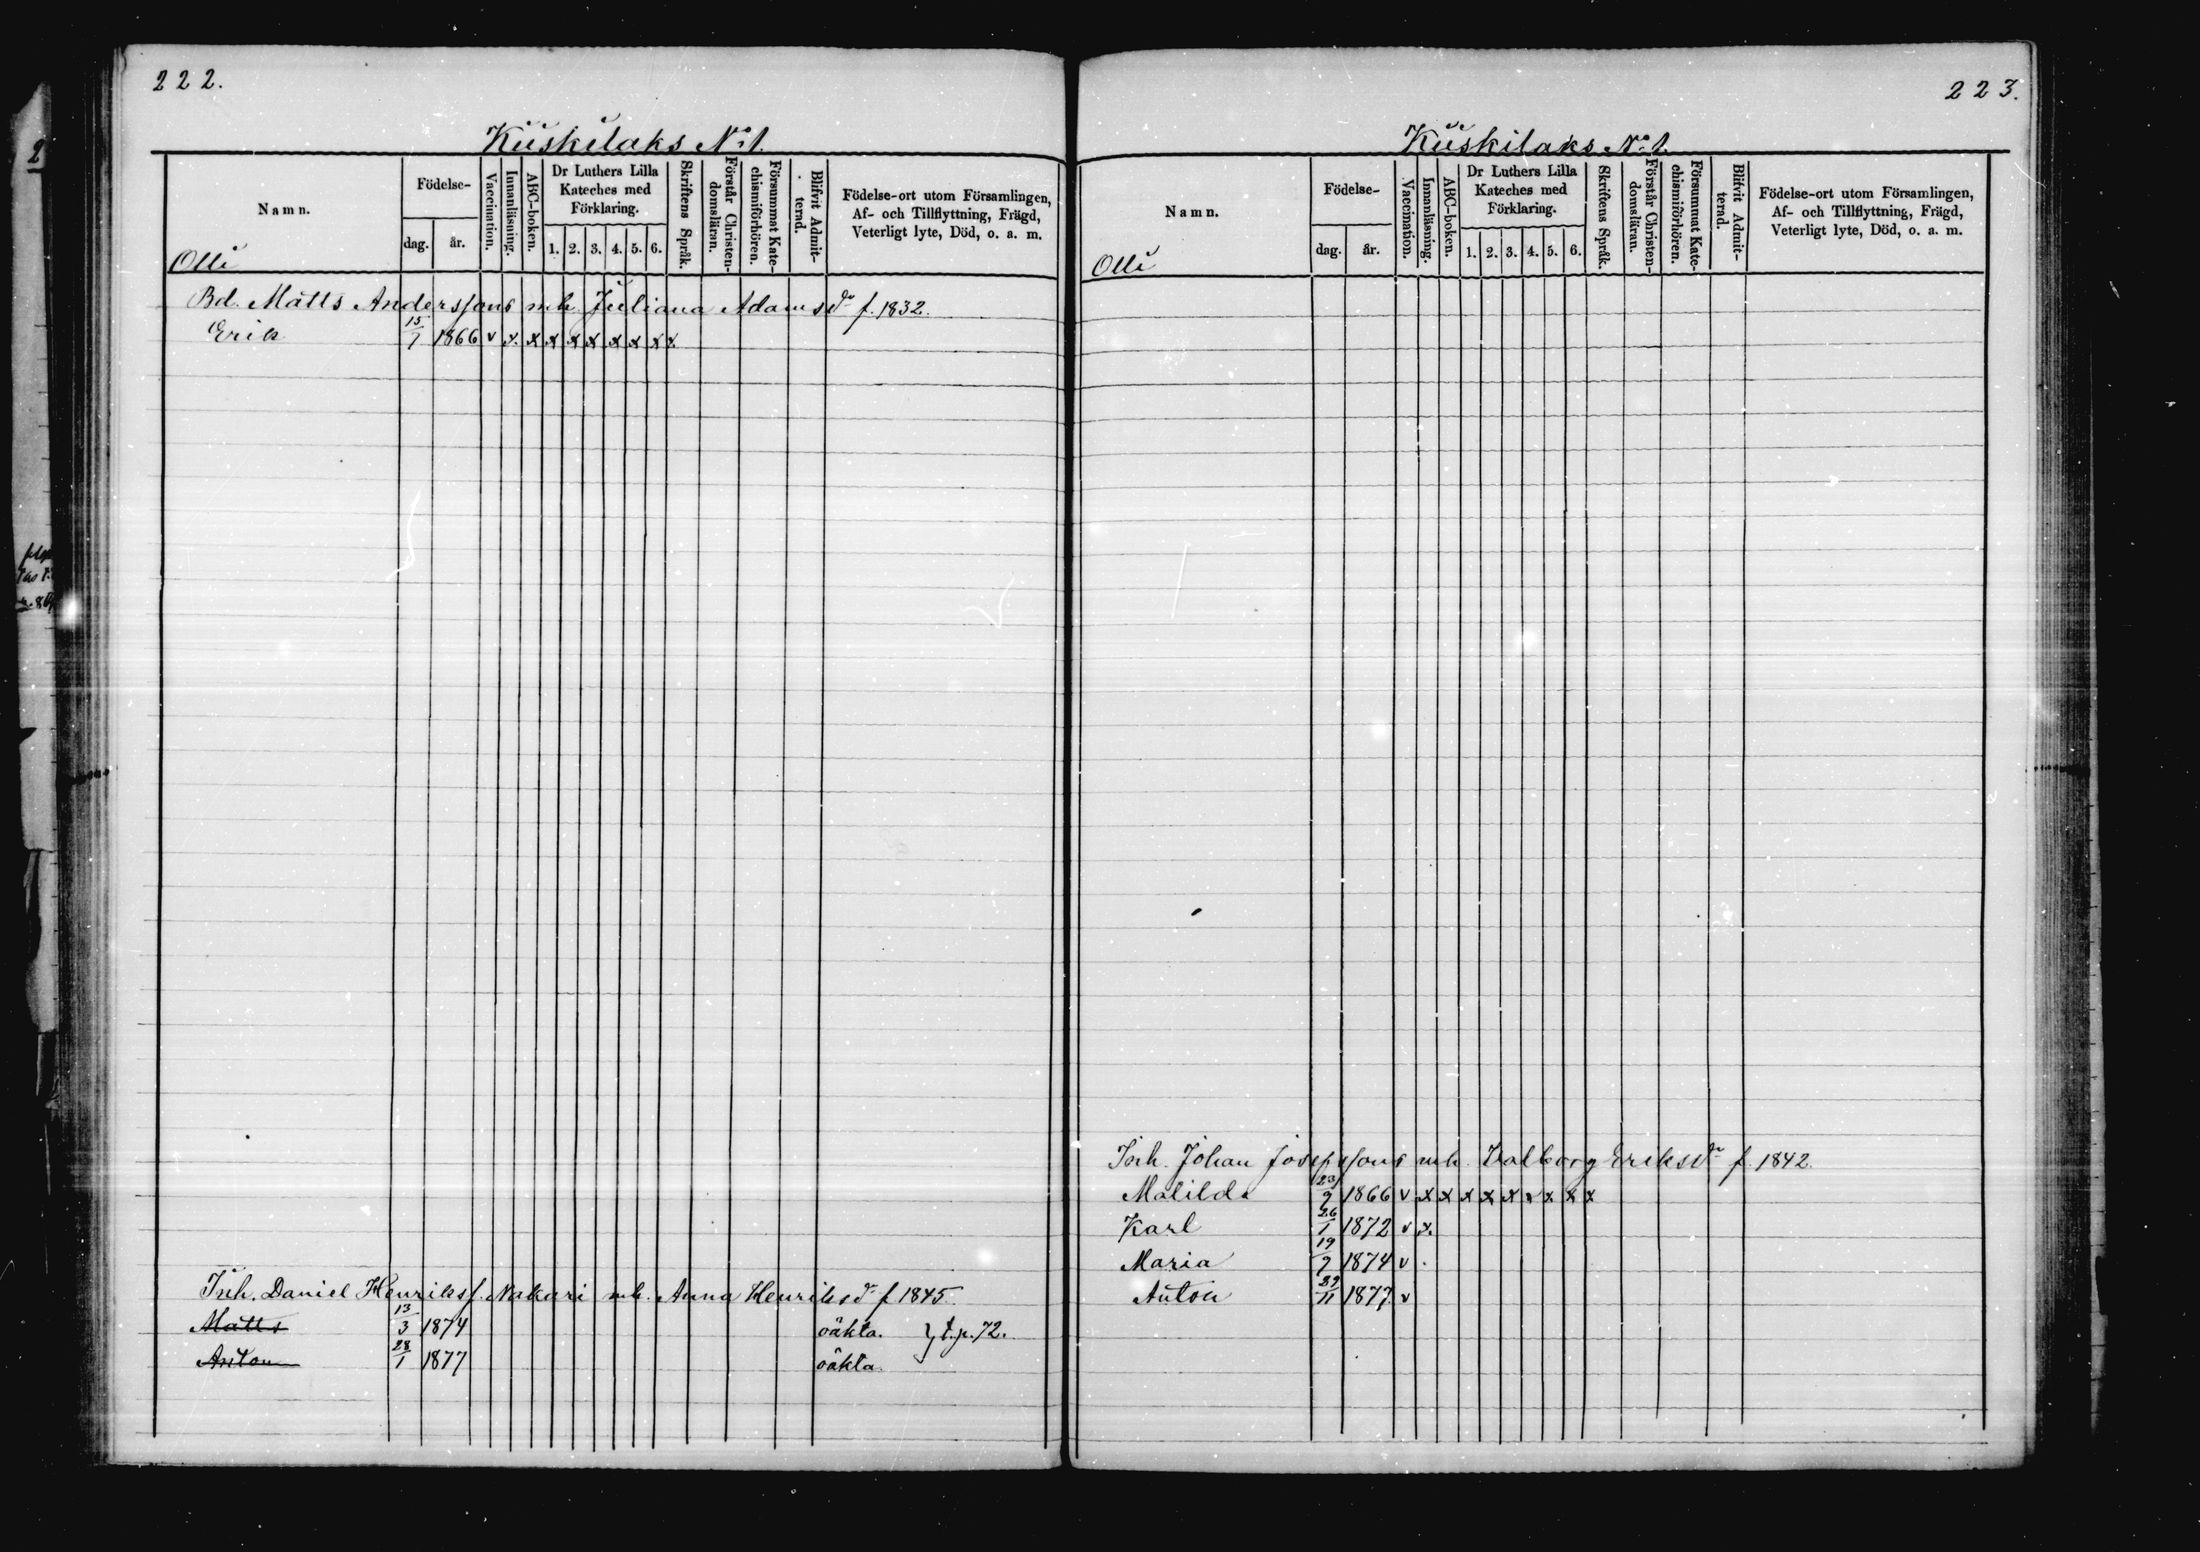 222.
Kuskilaks No 1.
Namn.
Födelse-
dag.
år.
Vaccination.
Innanläsning.
ABC-boken.
Dr Luthers Lilla
Kateches med
Förklaring.
1. 2. 3. 4. 5. 6.
Skriftens Språk.
Förstår Christen-
domsläran.
Försummat Kate-
chismiförhören.
Blifvit Admit-
terad.
Födelse-ort utom Församlingen,
Af- och Tillflyttning, Frägd,
Veterligt lyte, Död, o. a. m.
Olli
Bd. Matts Anderssons mh. Juliana Adamsdr f. 1832.
Erik 15/7 1866 v x. x x x x x x x x.
Inh. Daniel Henrikss. Nakari mh. Anna Henriksdr f 1845.
Matts 13/3 1874 oäkta. } t.p. 72.
Anton 28/1 1877 oäkta.
223.
Kuskilaks No 1.
Namn.
Födelse-
dag.
år.
Vaccination.
Innanläsning.
ABC-boken.
Dr Luthers Lilla
Kateches med
Förklaring.
1. 2. 3. 4. 5. 6.
Skriftens Språk.
Förstår Christen-
domsläran.
Försummat Kate-
chismiförhören.
Blifvit Admit-
terad.
Födelse-ort utom Församlingen,
Af- och Tillflyttning, Frägd,
Veterligt lyte, Död, o. a. m.
Olli
Inh. Johan Josefssons mh. Valborg Eriksdr f. 1842.
Matilda 23/9 1866 v x x x x x x x x x
Karl 26/1 1872 v x.
Maria 19/9 1874 v .
Anton 29/11 1877. v